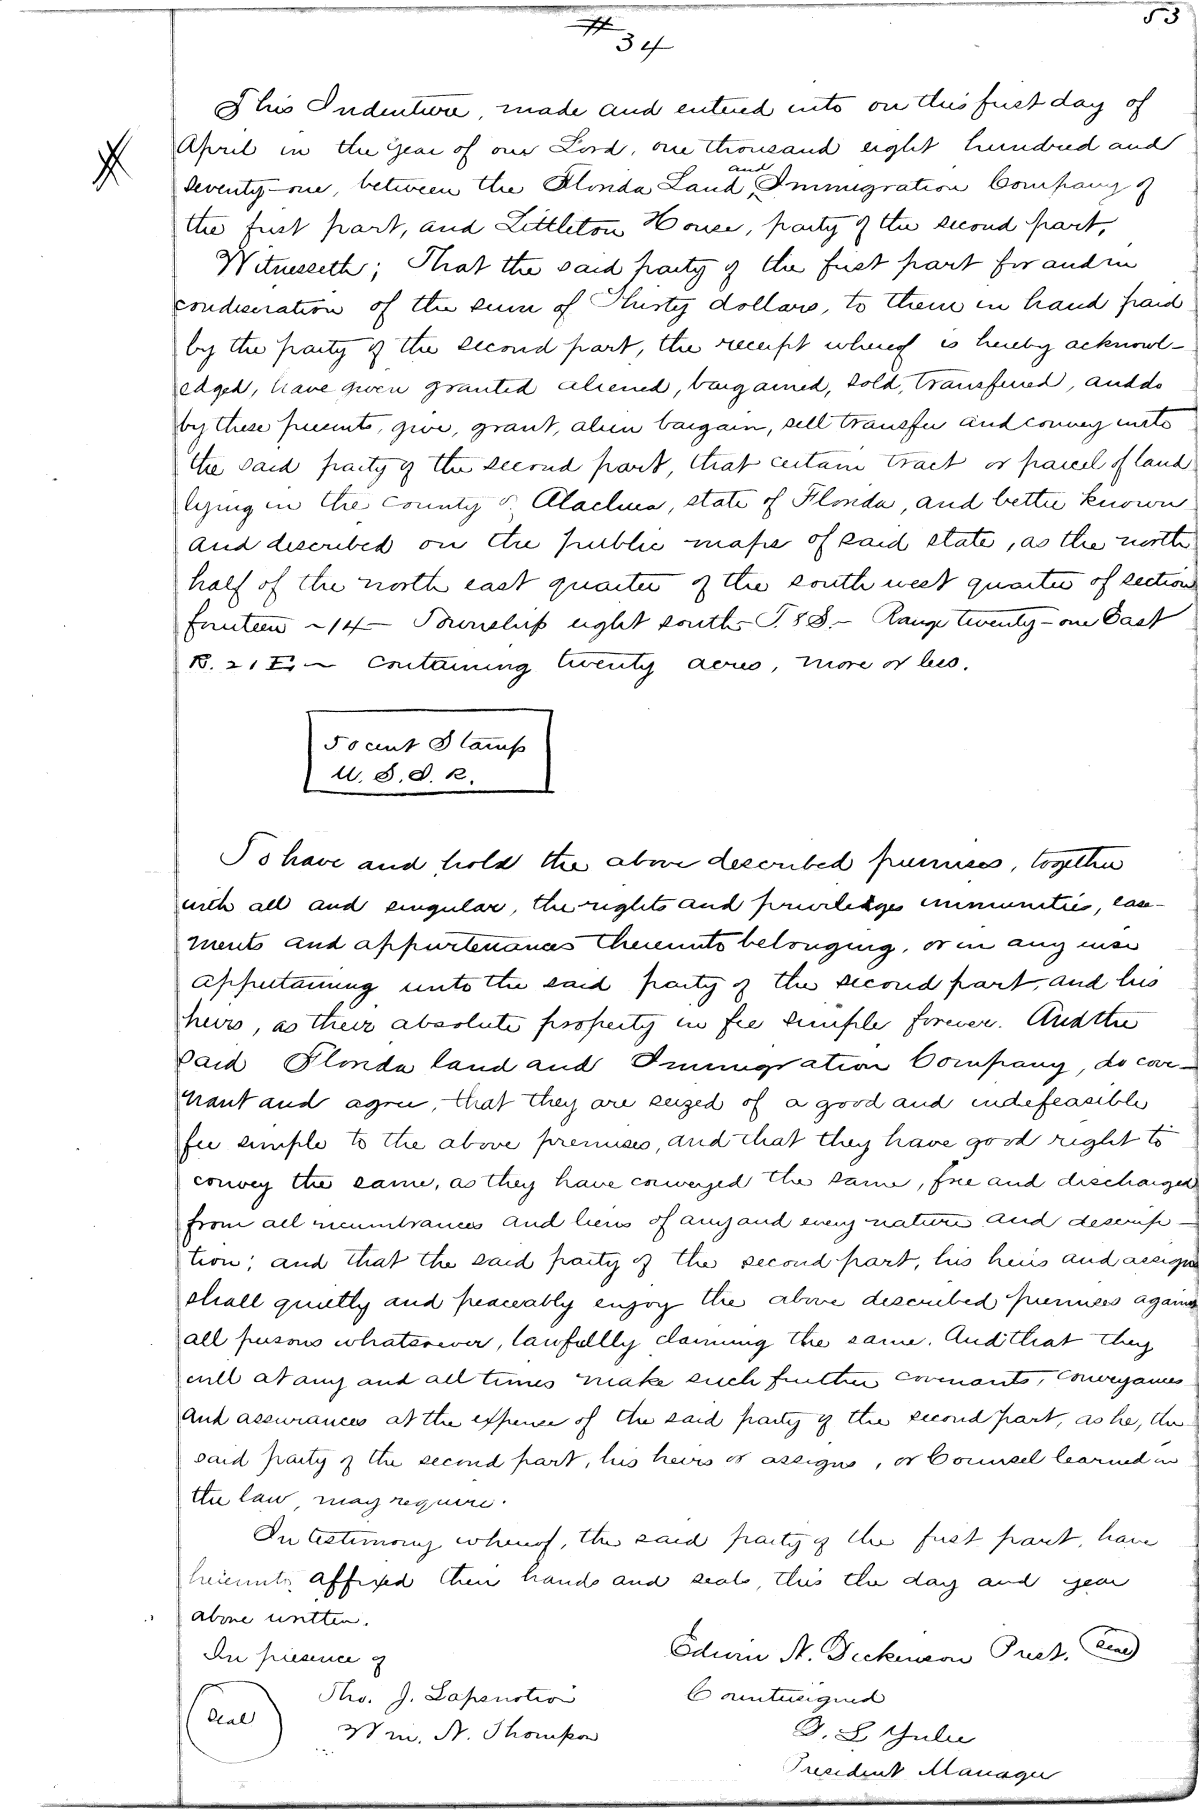 53
# 34
This Indenture, made and entered into on this first day of
April in the year of our Lord, one thousand eight hundred and
seventy-one, between the Florida Land and Immigration Company of
the first part, and Littleton House, party of the second part,
Witnesseth; That the said party of the first part for and in
condiseration of the sum of Thirty dollars, to them in hand paid
by the party of the second part, the receipt whereof is hereby acknowl-
edged, have given granted aliened, bargained, sold, transferred, and do
by these presents, give, grant, alien bargain, sell transfer and convey unto
the said party of the second part, that certain tract or parcel of land
lying in the county of Alachua, state of Florida, and better known
and described on the public maps of said state, as the north
half of the north east quarter of the south west quarter of section
fourteen -14- Township eight south- T. 8 S.- Range twenty-one East
R. 21 E. - containing twenty acres, more or less.
50 cent Stamp
U. S. I. R.
To have and hold the above described premises, together
with all and singular, the rights and privileges immunities, ease-
ments and appurtenances thereunto belonging, or in any wise
appertaining unto the said party of the second part, and his
heirs, as their absolute property in fee simple forever. And the
said Florida land and Immigration Company, do cove-
nant and agree, that they are seized of a good and indefeasible
fee simple to the above premises, and that they have good right to
convey the same, as they have conveyed the same, free and discharged
from all incumbrances and liens of any and every nature and descrip-
tion; and that the said party of the second part, his heirs and assigns
shall quietly and peaceably enjoy the above described premises against
all persons whatsoever, lawfully claiming the same. And that they
will at any and all times make such further covenants, conveyances
and assurances at the expense of the said party of the second part, as he, the
said party of the second part, his heirs or assigns, or Counsel learned in
the law, may require.
In testimony whereof, the said party of the first part, have
hereunto affixed their hands and seals, this the day and year
above written.
In presence of
Edwin N. Dickenson Prest. Seal
Seal
Tho. J.
Wm. N. Thompson
Countersigned
D. L Yulee
President Manager